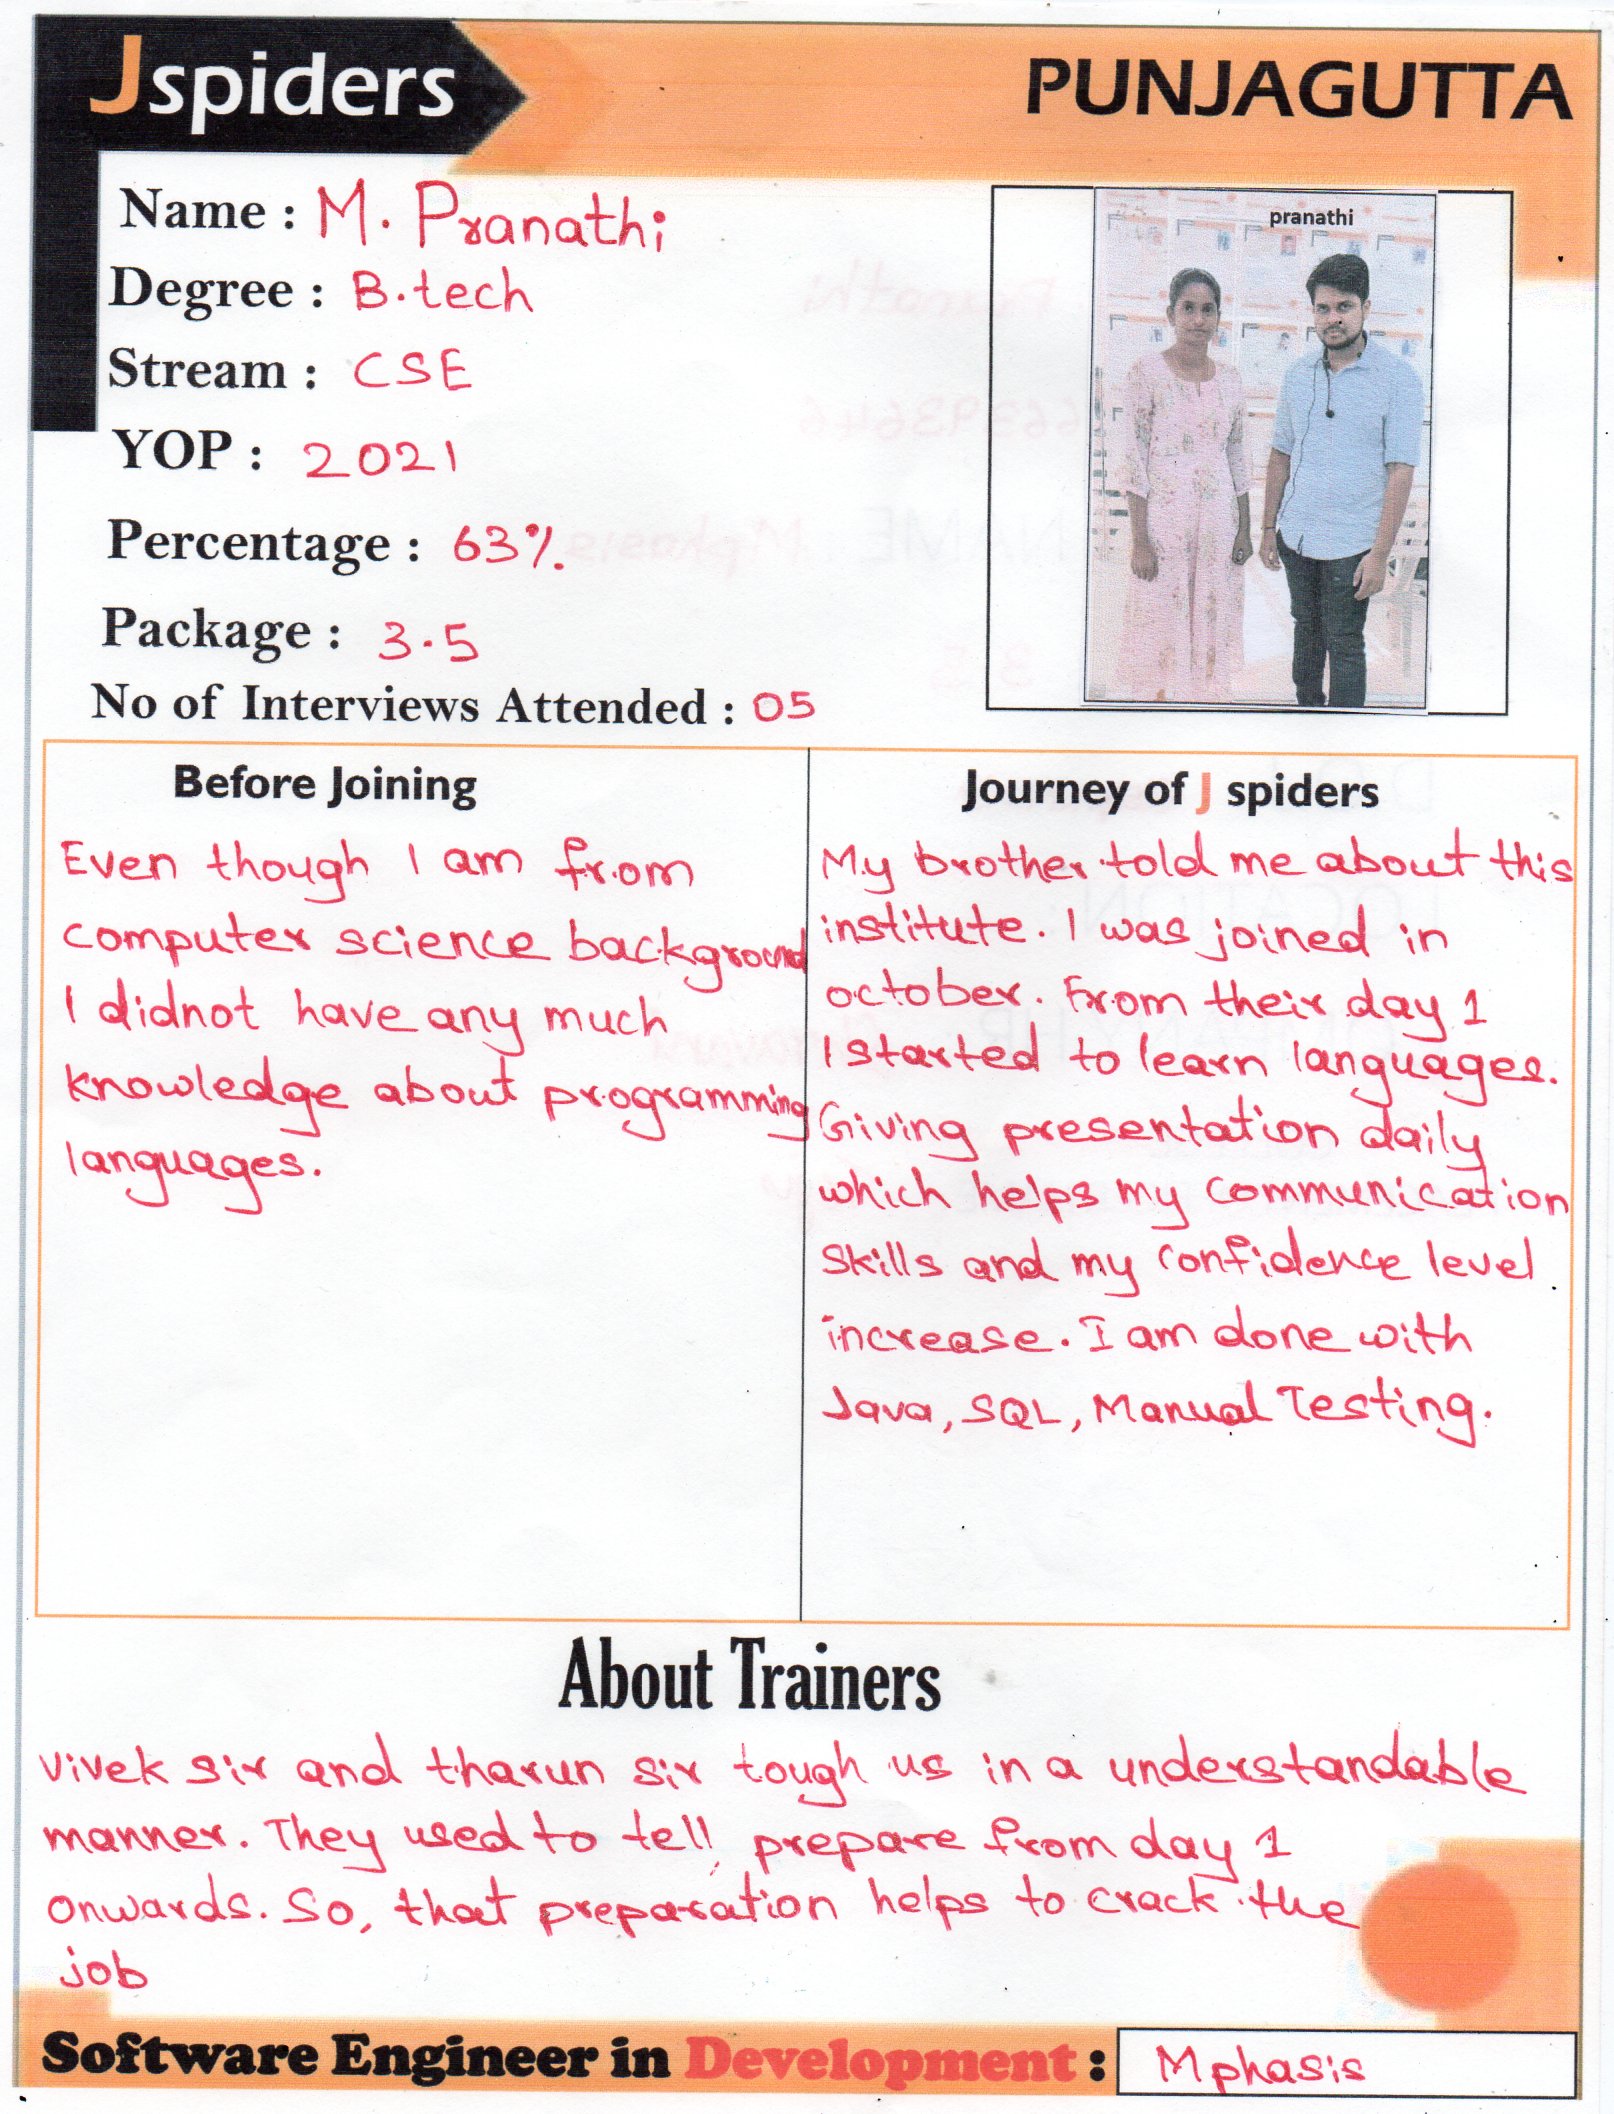 Jspiders
PUNJAGUTTA
Name : M. Pranathi
Degree : B.tech
Stream : CSE
YOP : 2021
Percentage : 63%
Package : 3.5
No of Interviews Attended : 05
pranathi
Before Joining
Even though I am from
computer science background
I didnot have any much
knowledge about programming
languages.
Journey of J spiders
My brother told me about this
institute. I was joined in
october. From their day 1
I started to learn languages.
Giving presentation daily
which helps my communication
skills and my confidence level
increase. I am done with
Java, SQL, Manual Testing.
About Trainers
Vivek sir and tharun sir tough us in a understandable
manner. They used to tell, prepare from day 1
onwards. So, that preparation helps to crack the
job
Software Engineer in Development : Mphasis